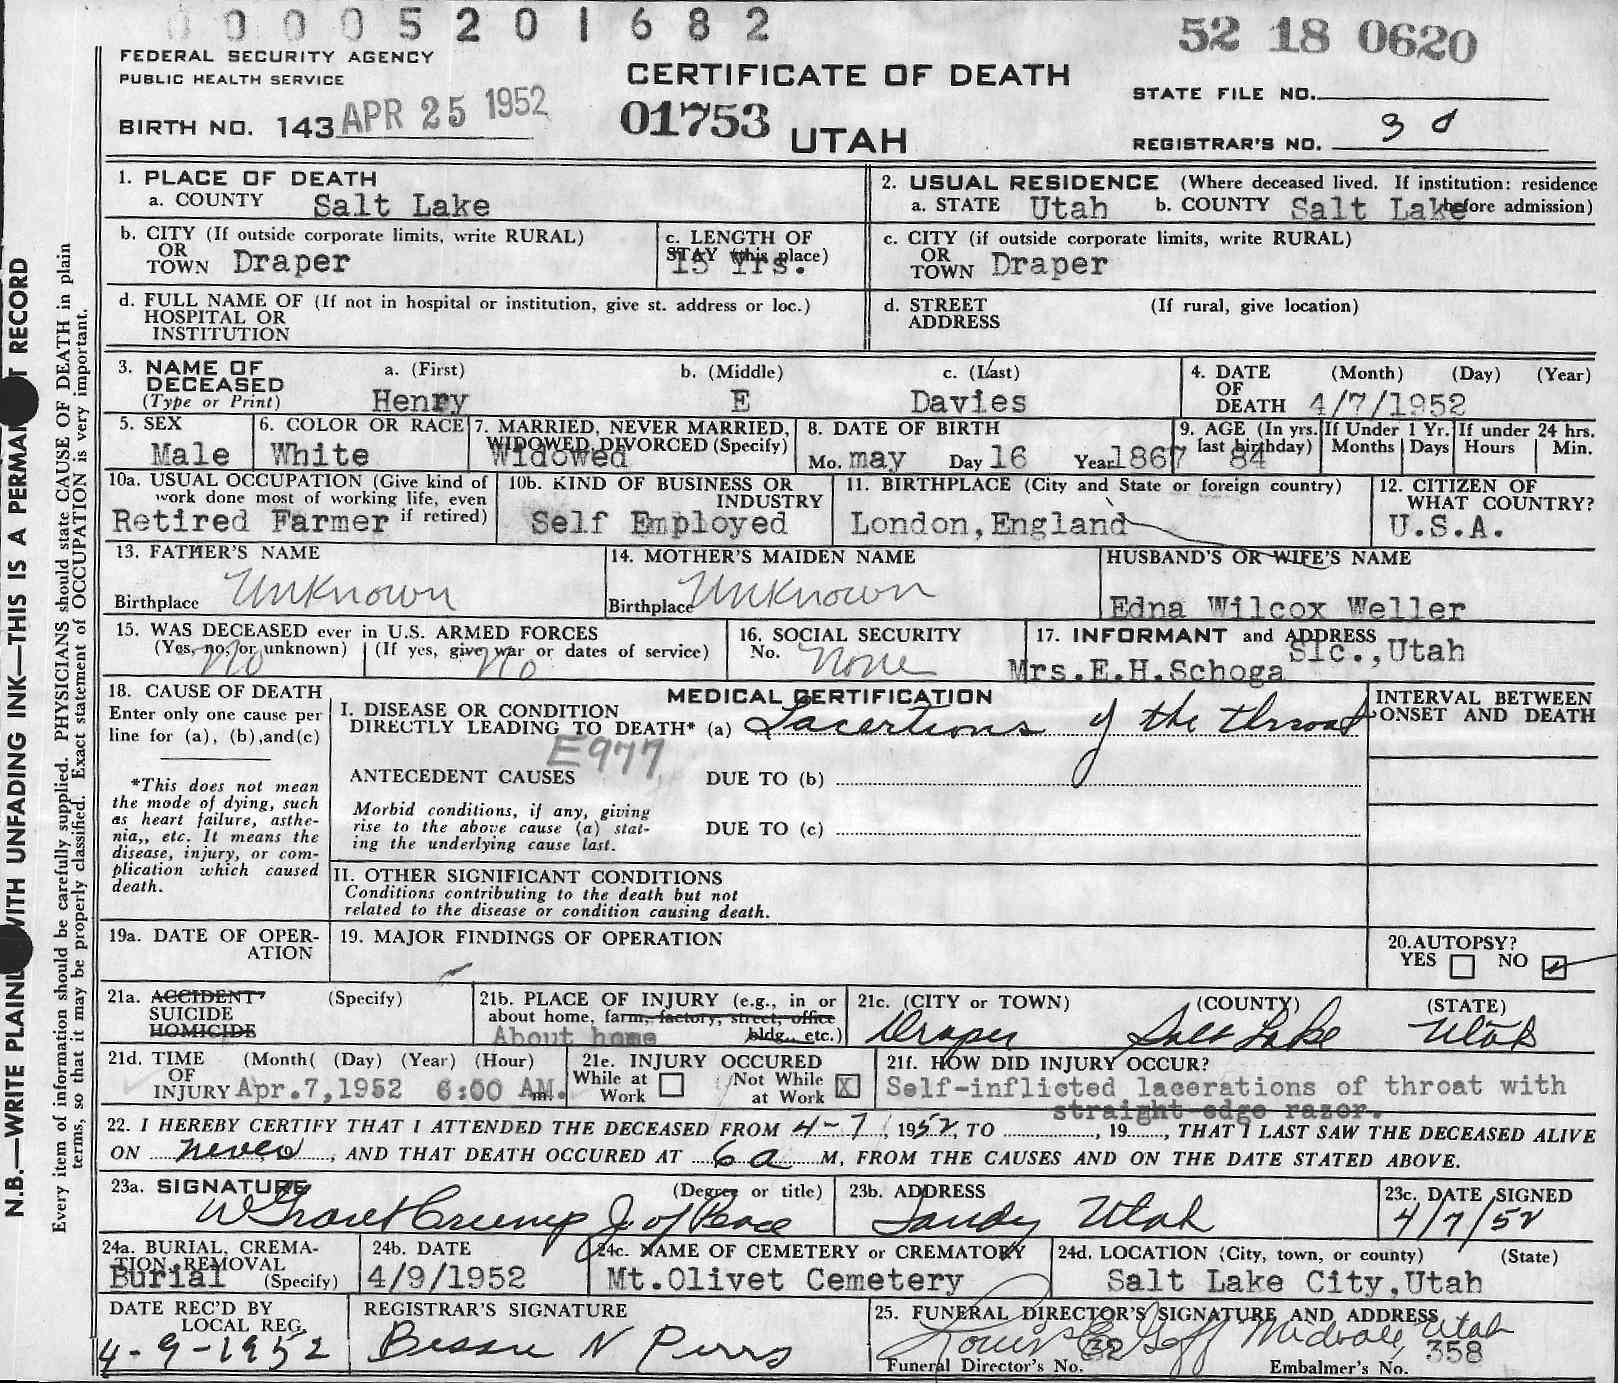 0 0 0 0 5 2 0 1 6 8 2
52 18 0620
FEDERAL SECURITY AGENCY
PUBLIC HEALTH SERVICE
CERTIFICATE OF DEATH
STATE FILE NO.
BIRTH NO. 143 APR 25 1952
01753 UTAH
REGISTRAR'S NO. 38
N.B.—WRITE PLAINLY WITH UNFADING INK—THIS IS A PERMANENT RECORD
Every item of information should be carefully supplied. PHYSICIANS should state CAUSE OF DEATH in plain
terms, so that it may be properly classified. Exact statement of OCCUPATION is very important.
1. PLACE OF DEATH
a. COUNTY Salt Lake
2. USUAL RESIDENCE (Where deceased lived. If institution: residence
a. STATE Utah b. COUNTY Salt Lake before admission)
b. CITY (If outside corporate limits, write RURAL)
OR
TOWN Draper
c. LENGTH OF
STAY (this place)
15 Yrs.
c. CITY (if outside corporate limits, write RURAL)
OR
TOWN Draper
d. FULL NAME OF (If not in hospital or institution, give st. address or loc.)
HOSPITAL OR
INSTITUTION
d. STREET (If rural, give location)
ADDRESS
3. NAME OF DECEASED
(Type or Print)
a. (First) b. (Middle) c. (Last)
Henry E Davies
4. DATE (Month) (Day) (Year)
OF
DEATH 4/7/1952
5. SEX
Male
6. COLOR OR RACE
White
7. MARRIED, NEVER MARRIED,
WIDOWED, DIVORCED (Specify)
Widowed
8. DATE OF BIRTH
Mo. may Day 16 Year 1867
9. AGE (In yrs. last birthday) 84
If Under 1 Yr. Months Days
If under 24 hrs. Hours Min.
10a. USUAL OCCUPATION (Give kind of
work done most of working life, even
if retired)
Retired Farmer
10b. KIND OF BUSINESS OR
INDUSTRY
Self Employed
11. BIRTHPLACE (City and State or foreign country)
London, England
12. CITIZEN OF
WHAT COUNTRY?
U.S.A.
13. FATHER'S NAME
Birthplace Unknown
14. MOTHER'S MAIDEN NAME
Birthplace Unknown
HUSBAND'S OR WIFE'S NAME
Edna Wilcox Weller
15. WAS DECEASED ever in U.S. ARMED FORCES
(Yes, no, or unknown) (If yes, give war or dates of service)
No No
16. SOCIAL SECURITY
No. None
17. INFORMANT and ADDRESS
Slc., Utah
Mrs.E.H.Schoga
18. CAUSE OF DEATH
Enter only one cause per
line for (a), (b),and(c)
*This does not mean
the mode of dying, such
as heart failure, asthe-
nia,, etc. It means the
disease, injury, or com-
plication which caused
death.
MEDICAL CERTIFICATION
I. DISEASE OR CONDITION
DIRECTLY LEADING TO DEATH* (a) Lacertions of the throat
E977
ANTECEDENT CAUSES DUE TO (b)
Morbid conditions, if any, giving
rise to the above cause (a) stat-
ing the underlying cause last.
DUE TO (c)
INTERVAL BETWEEN
ONSET AND DEATH
II. OTHER SIGNIFICANT CONDITIONS
Conditions contributing to the death but not
related to the disease or condition causing death.
19a. DATE OF OPER-
ATION
19. MAJOR FINDINGS OF OPERATION
20.AUTOPSY?
YES NO
21a. ACCIDENT (Specify)
SUICIDE
HOMICIDE
21b. PLACE OF INJURY (e.g., in or
about home, farm, factory, street, office
bldg., etc.)
About home
21c. (CITY or TOWN) (COUNTY) (STATE)
Draper Salt Lake Utah
21d. TIME (Month( (Day) (Year) (Hour)
OF
INJURY Apr.7,1952 6:00 AM. m.
21e. INJURY OCCURED
While at Work Not While at Work X
21f. HOW DID INJURY OCCUR?
Self-inflicted lacerations of throat with
straight edge razor.
22. I HEREBY CERTIFY THAT I ATTENDED THE DECEASED FROM 4-7, 1952, TO , 19 , THAT I LAST SAW THE DECEASED ALIVE
ON never , AND THAT DEATH OCCURED AT 6 a M, FROM THE CAUSES AND ON THE DATE STATED ABOVE.
23a. SIGNATURE (Degree or title)
W Grant Crump J. of Peace
23b. ADDRESS
Sandy Utah
23c. DATE SIGNED
4/7/52
24a. BURIAL, CREMA-
TION, REMOVAL
(Specify)
Burial
24b. DATE
4/9/1952
24c. NAME OF CEMETERY or CREMATORY
Mt.Olivet Cemetery
24d. LOCATION (City, town, or county) (State)
Salt Lake City, Utah
DATE REC'D BY
LOCAL REG.
4-9-1952
REGISTRAR'S SIGNATURE
Bessie N
25. FUNERAL DIRECTOR'S SIGNATURE AND ADDRESS
Goff Midvale, Utah
Funeral Director's No. 32 Embalmer's No. 358